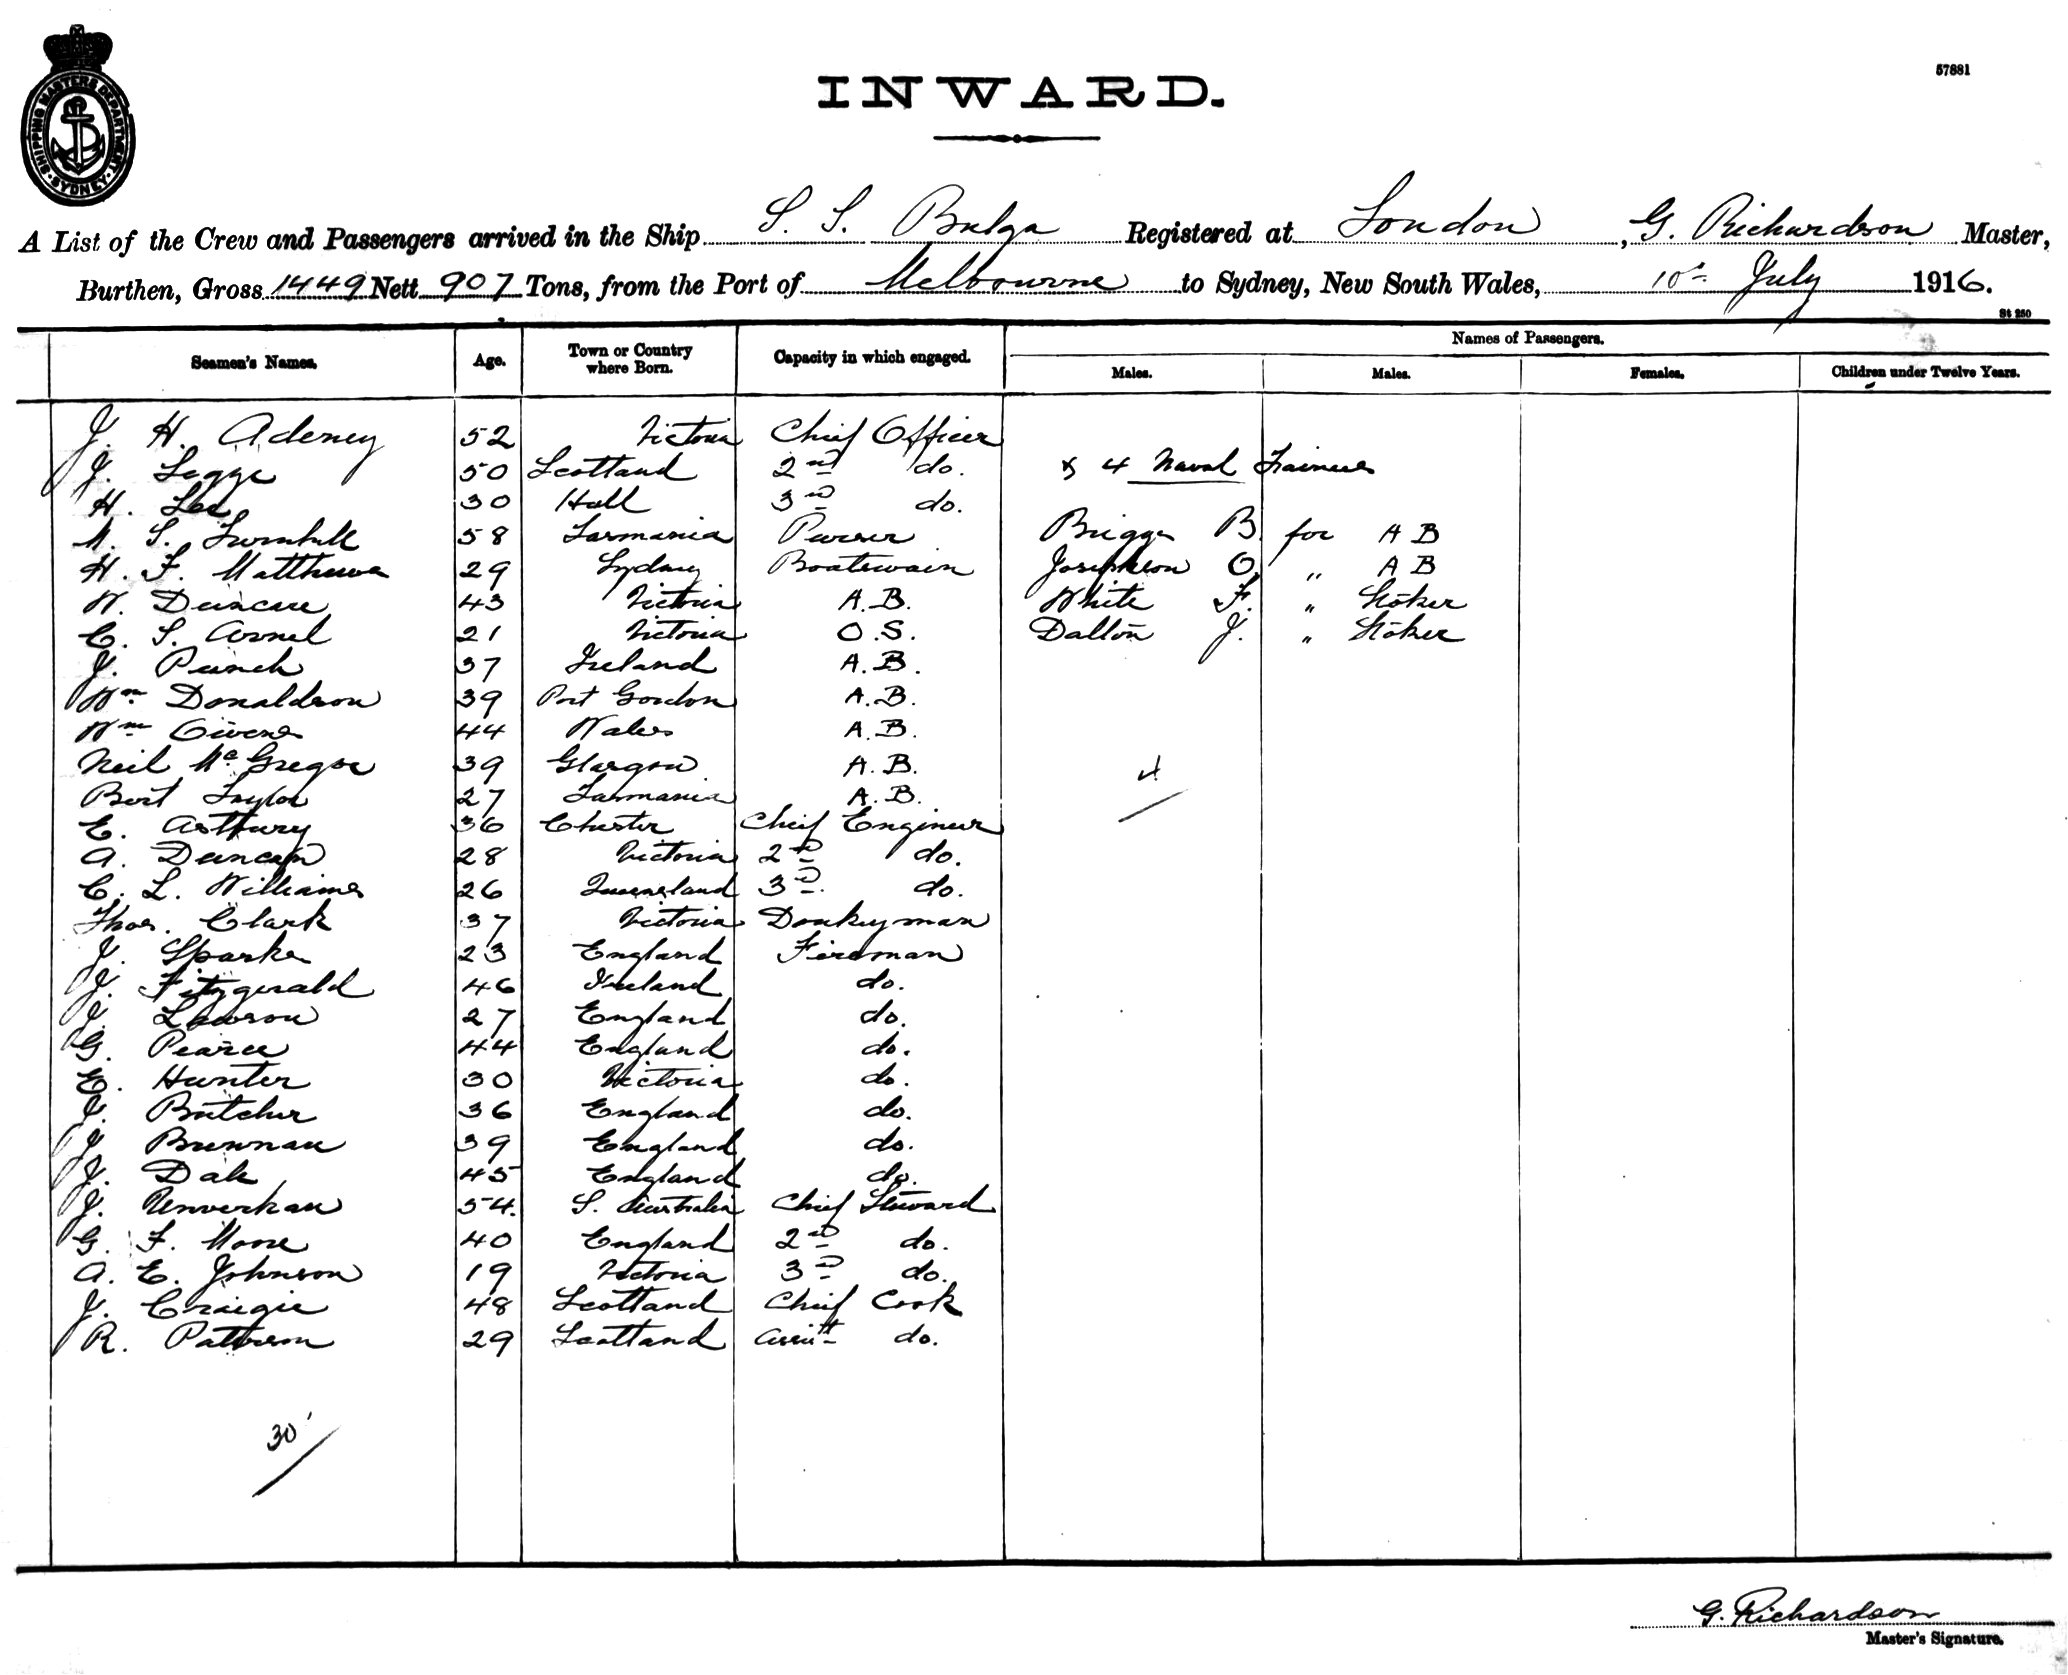 SHIPPING MASTERS DEPARTMENT · SYDNEY ·
57881
INWARD.
A List of the Crew and Passengers arrived in the Ship S. S. Bulga Registered at London, G. Richardson Master,
Burthen, Gross 1449 Nett 907 Tons, from the Port of Melbourne to Sydney, New South Wales, 10th July 1916.
St 250
Seamen's Names. Age. Town or Country where Born. Capacity in which engaged. Names of Passengers.
Males. Males. Females. Children under Twelve Years.
J. H. Adeney 52 Victoria Chief Officer
J. Legge 50 Scotland 2nd do. 4 Naval Trainees
H. Lee 30 Hull 3rd do.
58 Tasmania Purser Briggs B for A B
H. F. Matthews 29 Sydney Boatswain Josephson O. " A B
W. Duncan 43 Victoria A.B. White F. " Stoker
C. S. Arnel 21 Victoria O.S. Dalton J. " Stoker
J. Punch 37 Ireland A.B.
Wm Donaldson 39 Port Gordon A.B.
Wm Owens 44 Wales A.B.
Neil McGregor 39 Glasgow A.B. 4
Bert Taylor 27 Tasmania A.B.
E. Astbury 36 Chester Chief Engineer
A. Duncan 28 Victoria 2nd do.
C. L. Williams 26 Queensland 3rd do.
Thos. Clark 37 Victoria Donkeyman
J. Sparks 23 England Fireman
J. Fitzgerald 46 Ireland do.
J. Lawson 27 England do.
G. Pearce 44 England do.
E. Hunter 30 Victoria do.
J. Butcher 36 England do.
J. Brennan 39 England do.
J. Dale 45 England do.
J. Unverhau 54. S. Australia Chief Steward
G. F. Moore 40 England 2nd do.
A. E. Johnson 19 Victoria 3rd do.
J. Craigie 48 Scotland Chief Cook
R. Patterson 29 Scotland Assist do.
30
G. Richardson
Master's Signature.